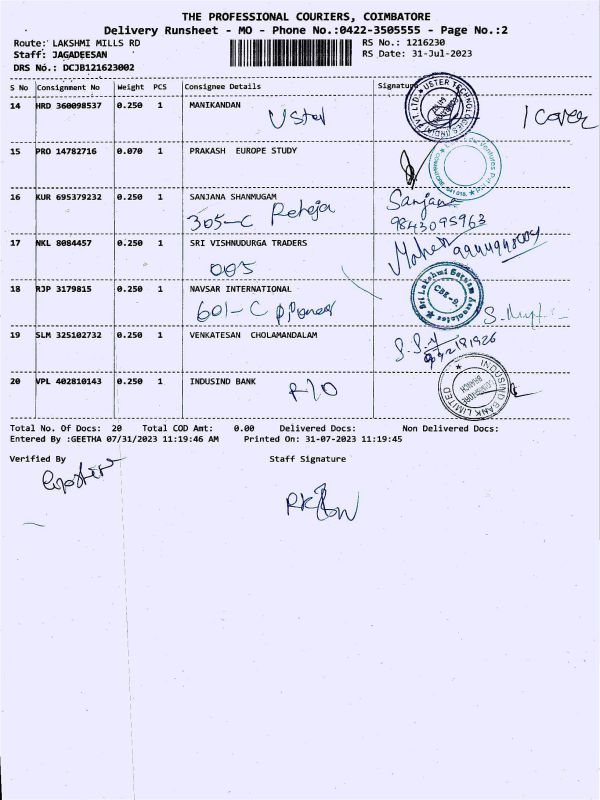 THE PROFESSIONAL COURIERS, COIMBATORE
Delivery Runsheet - MO - Phone No.:0422-3505555 - Page No.:2
Route: LAKSHMI MILLS RD RS No.: 1216230
Staff: JAGADEESAN RS Date: 31-Jul-2023
DRS No.: DCJB121623002
S No Consignment No Weight PCS Consignee Details Signature
14 HRD 360098537 0.250 1 MANIKANDAN
USTER TECHNOLOGIES (INDIA) PVT. LTD.
1 Cover
15 PRO 14782716 0.070 1 PRAKASH EUROPE STUDY
16 KUR 695379232 0.250 1 SANJANA SHANMUGAM
305-C Reheja
Sanjana
9843095963
17 NKL 8084457 0.250 1 SRI VISHNUDURGA TRADERS
005
Mahesh
18 RJP 3179815 0.250 1 NAVSAR INTERNATIONAL
601-C
Sri Lakshmi Associates
CBE-
19 SLM 325102732 0.250 1 VENKATESAN CHOLAMANDALAM
20 VPL 402810143 0.250 1 INDUSIND BANK
R/O
INDUSIND BANK LIMITED
COIMBATORE BRANCH
Total No. Of Docs: 20 Total COD Amt: 0.00 Delivered Docs: Non Delivered Docs:
Entered By :GEETHA 07/31/2023 11:19:46 AM Printed On: 31-07-2023 11:19:45
Verified By Staff Signature